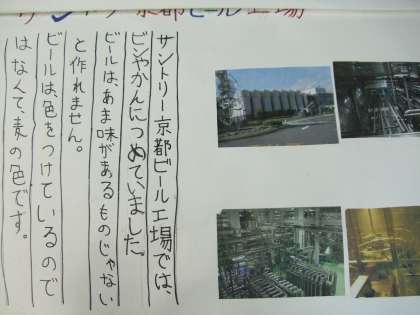 サントリー京都ビール工場
サントリー京都ビール工場では、
ビンやかんにつめていました。
ビールは、あま味があるものじゃない
と作れません。
ビールは、色をつけているので
はなくて、麦の色です。